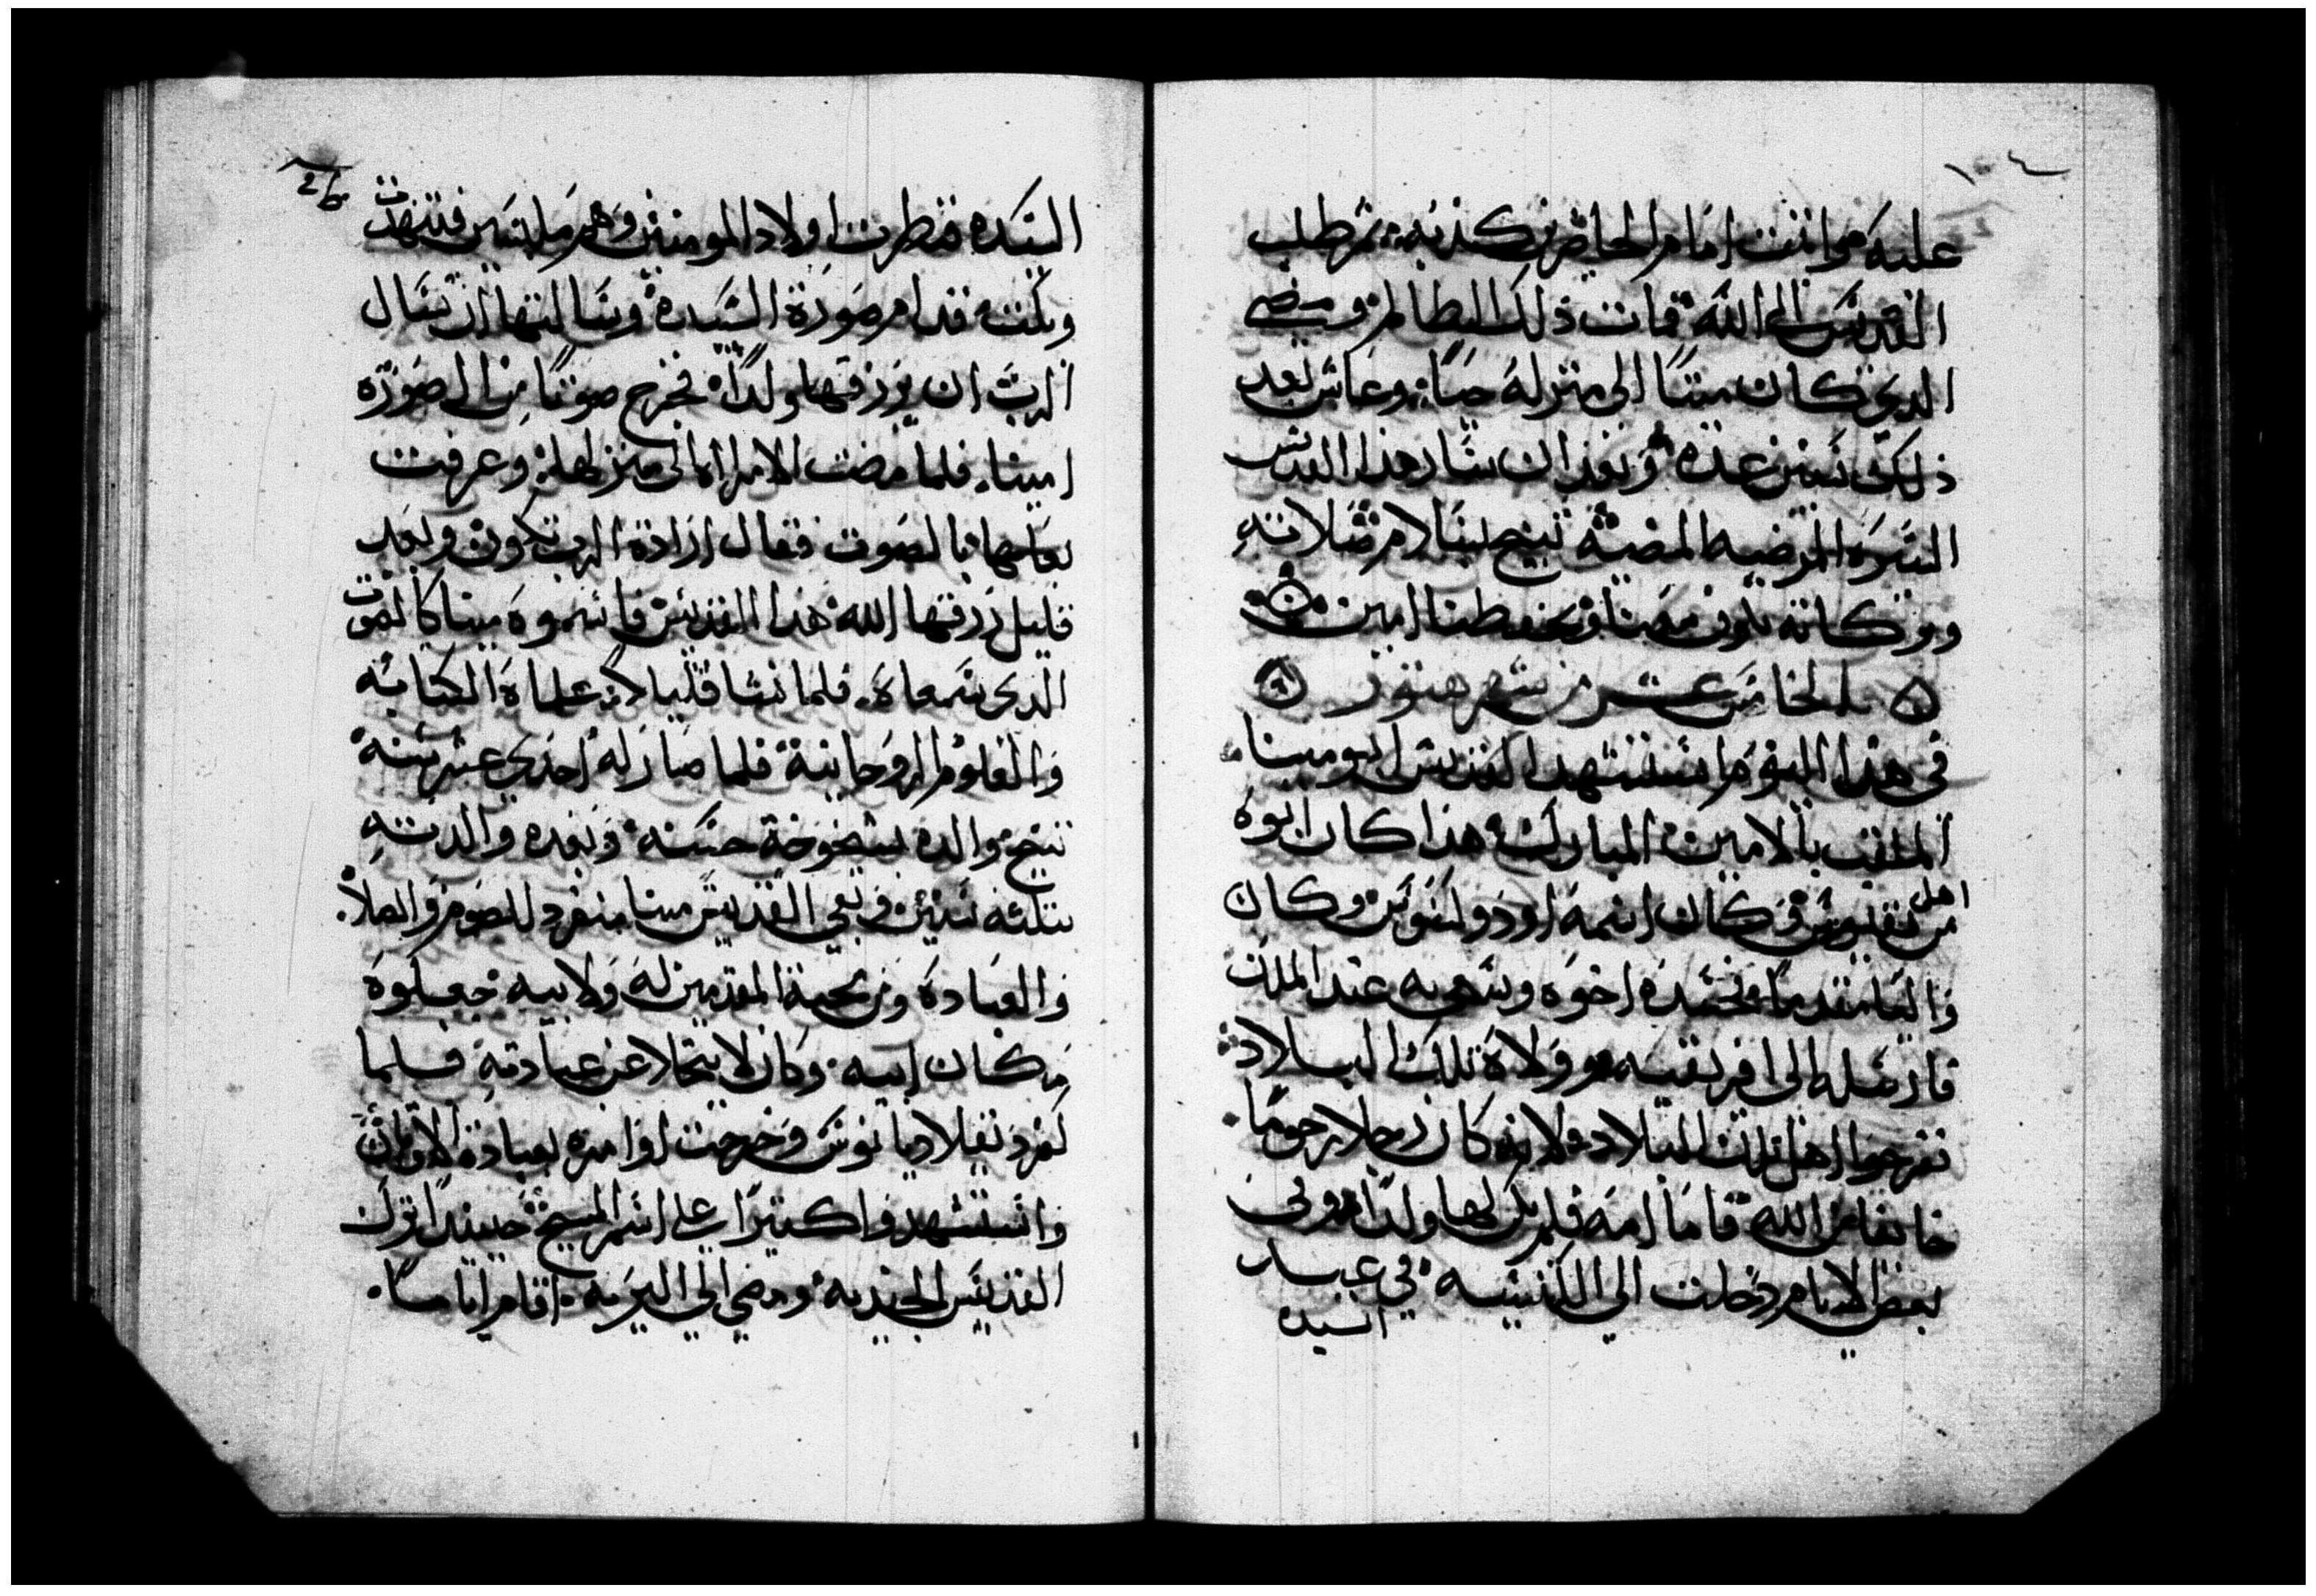 عليه وانت امام الحاضرين كدبه ثم طلب
القديس الى الله فمات ذلك الظالم ومضى
الدي كان ميتا الى منزله حيا وعاش بعد
ذلك سنين عده وبعد ان سار هدا القديس
السيره المرضيه المضيه تنيح بسلام صلاته
وبركاته تكون معنا وتحفظنا امين
الخامس عشر من شهر هتور
في هدا اليوم استشهد القديس ابو مينا
الملقب بالامين المبارك هدا كان ابوه
من اهل نقيوس وكان اسمه اودوكسوس وكان
واليا متقدما فحسده اخوه وسعى به عند الملك
فارسله الى افريقيه وولاه تلك البلاد
ففرحوا اهل تلك البلاد لانه كان رجلا رحوما
خايفا من الله فاما امه فلم يكن لها ولدا وفي
بعض الايام دخلت الي الكنيسه في عيد
السيده
السيده فنظرت اولاد المومنين وهم ملابسين فتنهدت
وبكت قدام صورة السيده وسالتها ان تسال
الرب ان يرزقها ولدا فخرج صوتا من الصوره
امينا فلما مضت الامراه الى منزلها وعرفت
بعلها بالصوت فقال ارادة الرب تكون وبعد
قليل رزقها الله هدا القديس فاسموه مينا كالصوت
الدي سمعاه فلما نشا قليلا علماه الكتابه
والعلوم الروحانية فلما صار له احدي عشر سنه
تنيح والده بشيخوخة حسنه وبعده والدته
بتلته سنين وبقي القديس مينا منفرد للصوم والصلاه
والعباده ومن محبة المقدمين له ولابيه جعلوه
مكان ابيه وكان لا يتخلا عن عبادته فلما
كفر دقلاديانوس وخرجت اوامره بعبادة الاوثان
واستشهدوا كتيرا على اسم المسيح حينيدا ترك
القديس الجنديه ومضي الي البريه اقام اياما